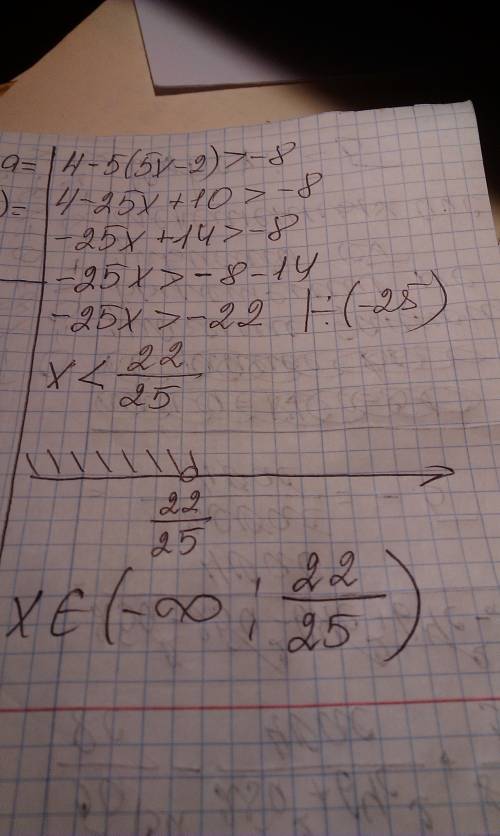 a= 4-5(5x-2)>-8
)= 4-25x+10>-8
-25x+14>-8
-25x>-8-14
-25x>-22 |÷(-25)
x<22/25
22/25
x∈(-∞;22/25)